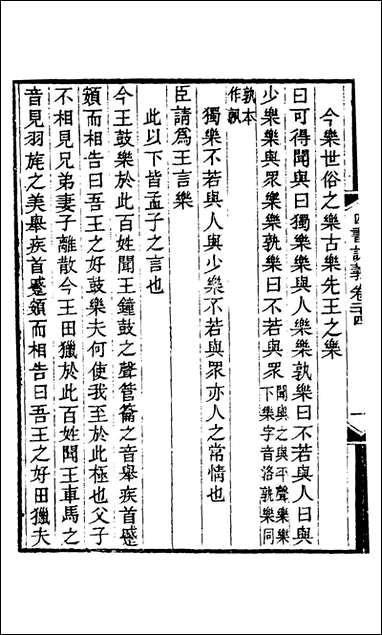 今樂世俗之樂古樂先王之樂
曰可得聞與曰獨樂樂與人樂樂孰樂曰不若與人曰與
少樂樂與眾樂樂孰樂曰不若與眾聞與之與平聲樂樂
下樂字音洛孰樂同
孰本
作飆
獨樂不若與人與少樂不若與眾亦人之常情也
臣請為王言樂
此以下皆孟子之言也
今王鼓樂於此百姓聞王鐘鼓之聲管籥之音舉疾首蹙
頞而相告曰吾王之好鼓樂夫何使我至於此極也父子
不相見兄弟妻子離散今王田獵於此百姓聞王車馬之
音見羽旄之美舉疾首蹙頞而相告曰吾王之好田獵夫
四書
卷二十四
一